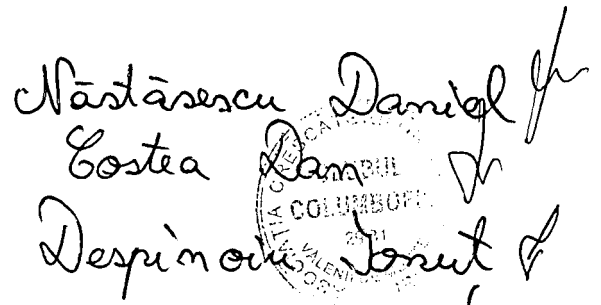 Năstăsescu Daniel
Costea Dan
Despinoiu Ionuț
COLUMBOFIL